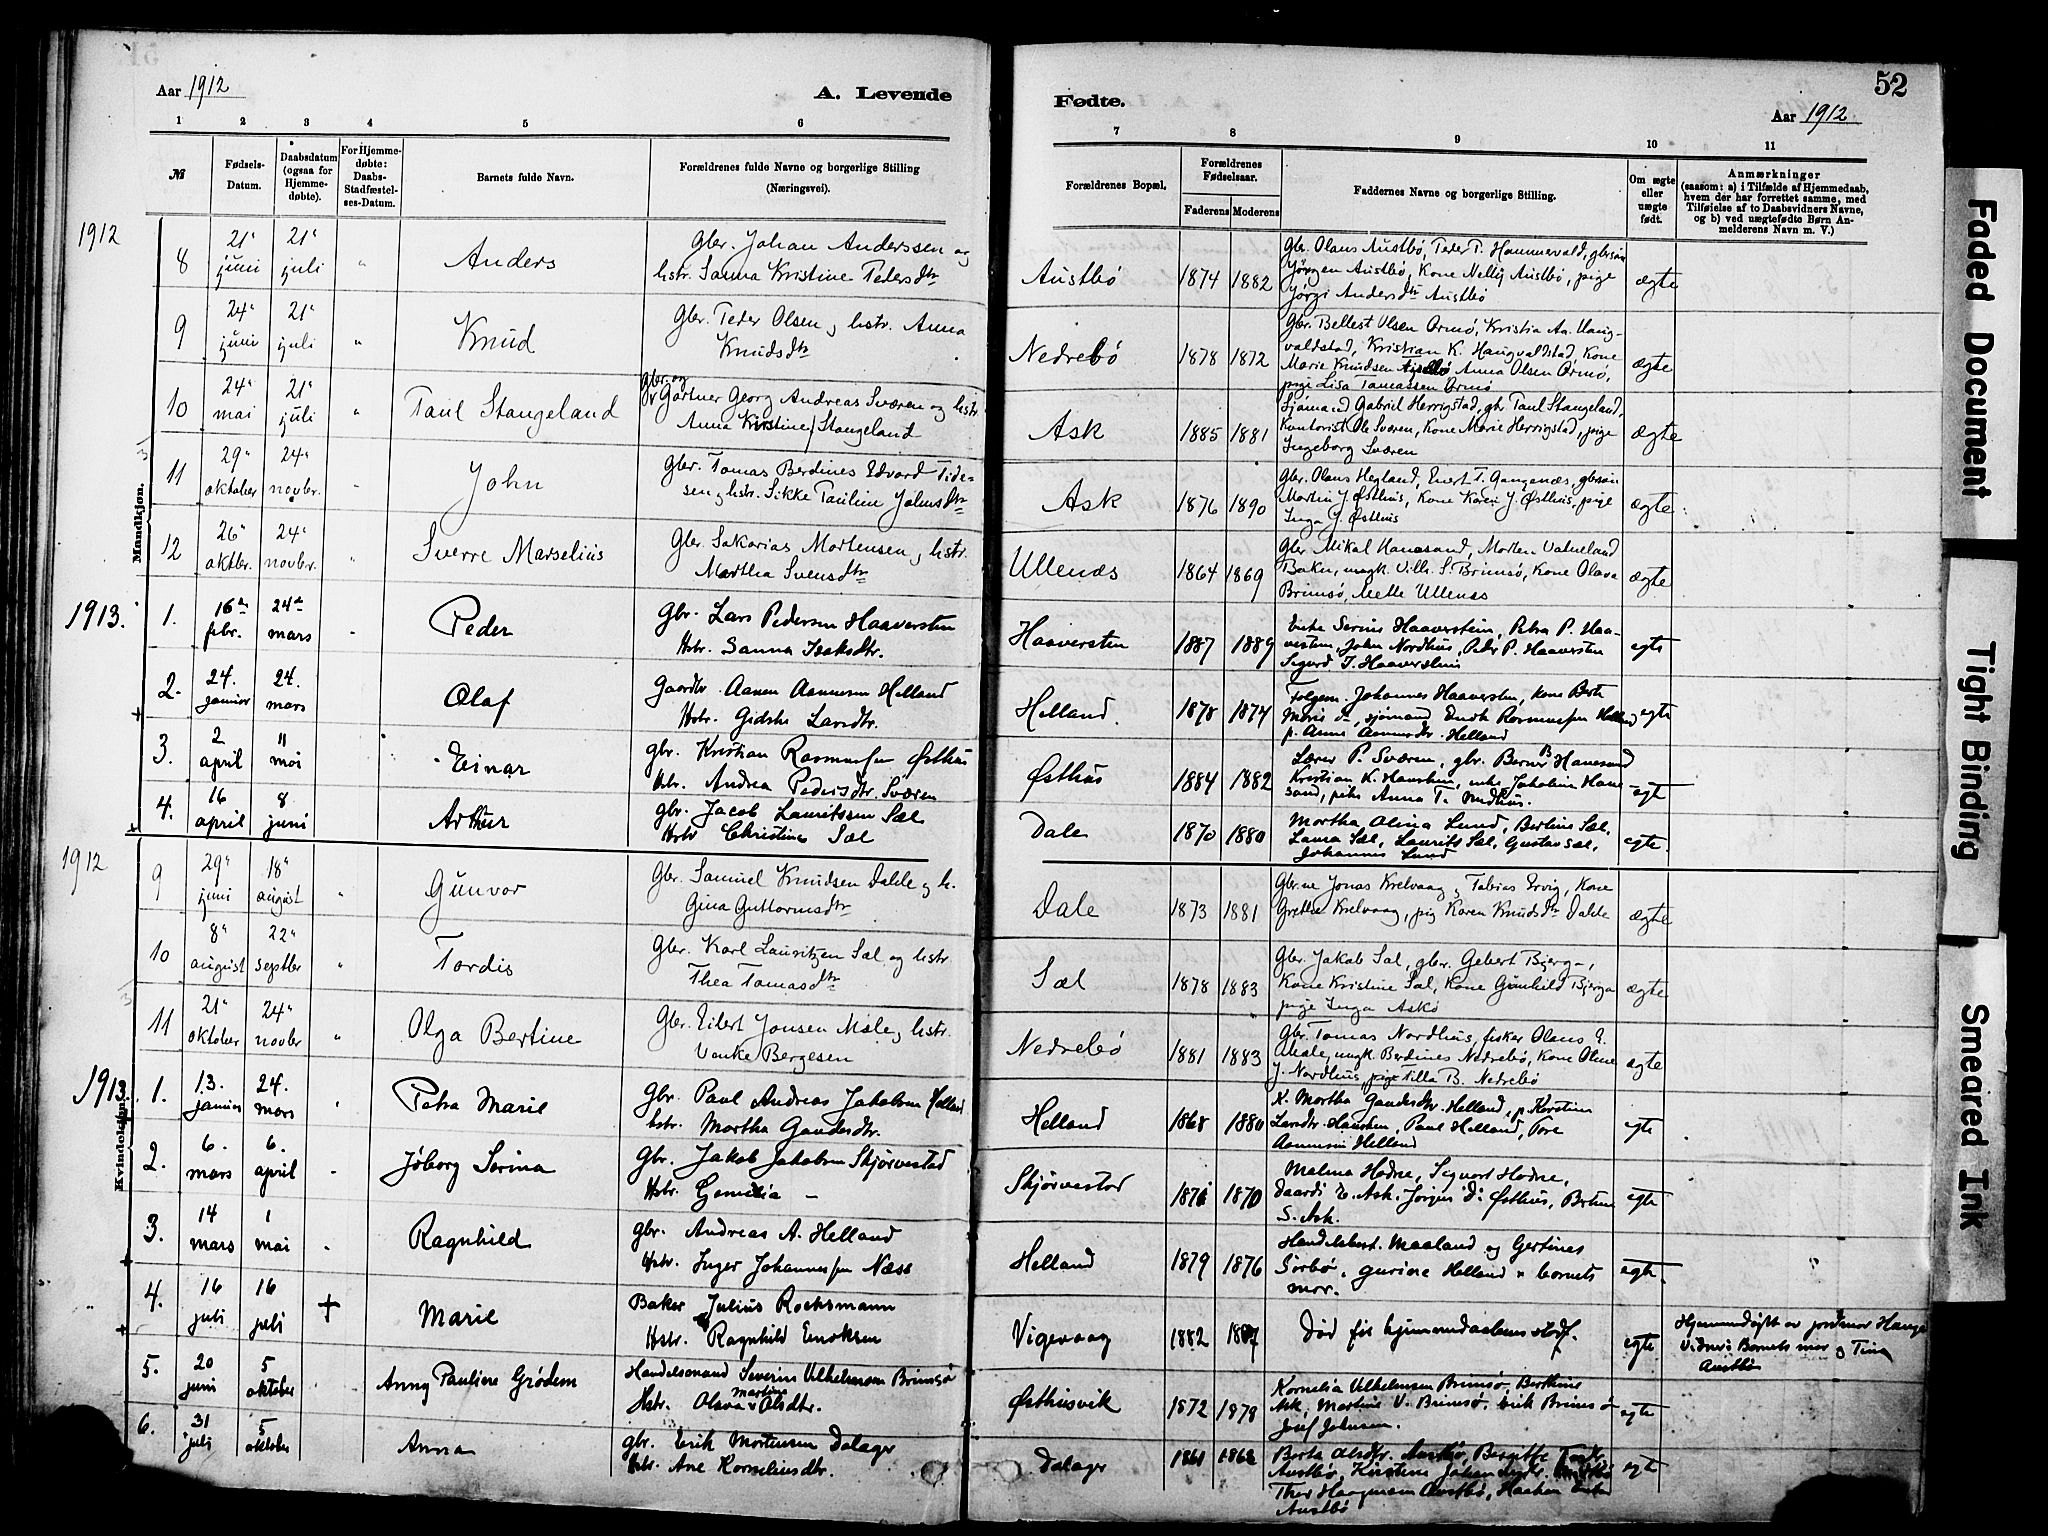 Aar 1912
A. Levende
Fødte.
52
Aar 1912
1 2 3 4 5 6 7 8 9 10 11
№
Fødsels-
Datum.
Daabsdatum
(ogsaa for
Hjemme-
døbte).
For Hjemme-
døbte:
Daabs-
Stadfæstel-
ses-Datum.
Barnets fulde Navn.
Forældrenes fulde Navne og borgerlige Stilling
(Næringsvei).
Forældrenes Bopæl.
Forældrenes
Fødselsaar.
Faderens Moderens
Faddernes Navne og borgerlige Stilling.
Om ægte
eller
uægte
født.
Anmærkninger
(saasom: a) i Tilfælde af Hjemmedaab,
hvem der har forrettet samme, med
Tilføielse af to Daabsvidners Navne,
og b) ved uægtefødte Børn An-
melderens Navn m. V.)
Mandkjøn.
1912
8 21 juni 21 juli Anders
Gbr. Johan Anderssen og
hstr. Sanna Kristine Pedersdtr
Austbø 1874 1882
Gbr. Olaus Austbø, Peder T. Hammervald, gbrsøn
Jørgen Austbø, Kone Nelly Austbø, pige
Jørgi Andersdtr Austbø
ægte
9 24 juni 21 juli Knud
Gbr. Peder Olsen og hstr. Anna
Knudsdtr
Nedrebø 1878 1872
Gbr. Bellest Olsen Ormø, Kristia Aa. Haug-
valdstad, Kristian K. Haugvaldstad, Kone
Marie Knudsen, Anna Olsen Ormø,
pige Lisa Tamassen Ormø
ægte
10 24 mai 21 juli Paul Stangeland
gbr. og
Gartner Georg Andreas Sværen og hstr.
Anna Kirstine Stangeland
Ask 1885 1881
Sjømand Gabriel Herrigstad, gbr Paul Stangeland,
Kontorist Ole Sværen, Kone Marie Herrigstad, pige
Ingeborg Sværen
ægte
11 29 oktober 24 novbr. John
Gbr. Tomas Berdines Edvard Tide-
sen og hstr. Sikke Pauline Johnsdtr
Ask 1876 1890
Gbr. Olaus Hegland, Enert T. Gangenæs, gbrsøn
Martin J. Østhus, Kone Karen J. Østhus, pige
Inga J. Østhus
ægte
12 26 oktbr. 24 novbr. Sverre Marselius
Gbr. Sakarias Mortensen og hstr.
Martha Svensdtr
Ullenæs 1864 1869
Gbr. Mikal Hanasand, Morten Vatneland
Baker, ungk. Vilh. S. Brimsø, Kone Olava
Brimsø, Mette Ullenæs
ægte
1913.
1. 16de febr. 24de mars Peder
Gbr. Lars Pedersen Haaversten
Hstr. Sanna Isaksdtr.
Haaversten 1887 1889
Enke Serine Haaverstein, Petra P. Haa-
versten, John Nordhus, Peder P. Haaversten
Sigurd I. Haaversten
egte
2. 24. januar 24. mars Olaf
Gaardbr. Aanen Aanensen Helland
Hstr. Gidske Larsdtr.
Helland. 1878 1874
Folgem. Johannes Haaversten, kone Berte
Marie do, sjømand Enok Rasmussen Helland
p. Anna Aanensdtr. Helland
egte
3. 2 april 11 mai Einar
gbr. Kristian Rasmussen Østhus
Hstr. Andrea Pedersdtr. Sværen
Østhus 1884 1882
Lærer P. Sværen, gbr. Bernt B Hanesand
Kristian K. Haustein, enke Jakobine Hane
sand, pike Anna T.
egte
4. 16 april 8 juni Arthur
gbr. Jacob Lauritssen Sæl
Hstr Christine Sæl
Dale 1870 1880
Martha Olina Lund, Bertine Sæl,
Laura Sæl, Laurits Sæl, Gustav Sæl,
Johannes Lund
egte.
Kvindekjøn.
1912
9 29 juni 18 august Gunvor
Gbr. Samuel Knudsen Dahle og h.
Gina Guttormsdtr
Dale 1873 1881
Gbr.ne Jonas Krelvaag, Tobias Ervig, Kone
Grethe Krelvaag, pig Karen Knudsdtr Dahle
ægte
10 8 august 22 septber Tordis
Gbr. Karl Lauritzen Sæl og hstr.
Thea Tomasdtr
Sæl 1878 1883
Gbr. Jakob Sæl, gbr. Gebert Bjerga,
Kone Kristine Sæl, Kone Gunhild Bjerga
pige Inga Askø
ægte
11 21 oktober 24 novber Olga Bertine
Gbr. Eilert Jonsen Mæle og hstr.
Vonke Bergesen
Nedrebø 1881 1883
Gbr. Tomas Nordhus, fisker Olaus E.
Meale, ungk. Berdines Nedrebø, Kone Oline
J. Nordhus, pige Tilla B. Nedrebø
ægte
1913
1. 13. januar 24. mars Petra Marie
Gbr. Paul Andreas Jakobsen Helland
hstr. Martha Gaudesdtr.
Helland 1868 1880
K. Martha Gaudesdtr. Helland, p. Kirstine
Larsdtr. Haustein, Paul Helland, Tore
Aanensen Helland
egte
2. 6. mars 6. april Jøborg Serina
Gbr. Jakob Jakobsen Skjørvestad
Hstr. Gemelia -
Skjørvestad 1871 1870
Malena Hodne, Sigvart Hodne,
E. Ask, Jørgine D. Østhus, Berten
S. Ask.
egte
3. 14 mars 1 mai Ragnhild
gbr. Andreas A. Helland
Hstr. Inger Johannessen Næss
Helland 1879 1876
Handelsbest. Maaland og Gertines
Sørbø, Gurine Helland, barnets
mor.
egte.
4. 16 juli 16 juli + Marie
Baker Julius Rocksmann
Hstr. Ragnhild Enoksen
Vigevaag 1882 1887
Død før hjemmedaabens stadf.
egte.
Hjemmedøpt av jordmor Hauge
Vidner: Barnets mor og Tina
Austbø
5. 20 juni 5 oktober Anny Pauline Grødem
Handelsmand Severin Vilhelmsen Brimsø
Hstr. Olava Martine Olsdtr.
Østhusvik 1872 1878
Kornelia Vilhelmsen Brimsø, Berthine
Ask, Martine V. Brimsø, Erik Brimsø
Josef Johnsen.
egte
6. 31 juli 5 oktober Anna
gbr. Erik Mortensen Dalager
Hstr. Ane Korneliusdtr.
Dalager 1861 1862
Berta Olsdtr. Austbø, Bergitte
Austbø, Kirstine Johannesdtr.
Thor Haagensen Austbø, Haaken
Austbø
egte
Faded Document
Tight Binding
Smeared Ink